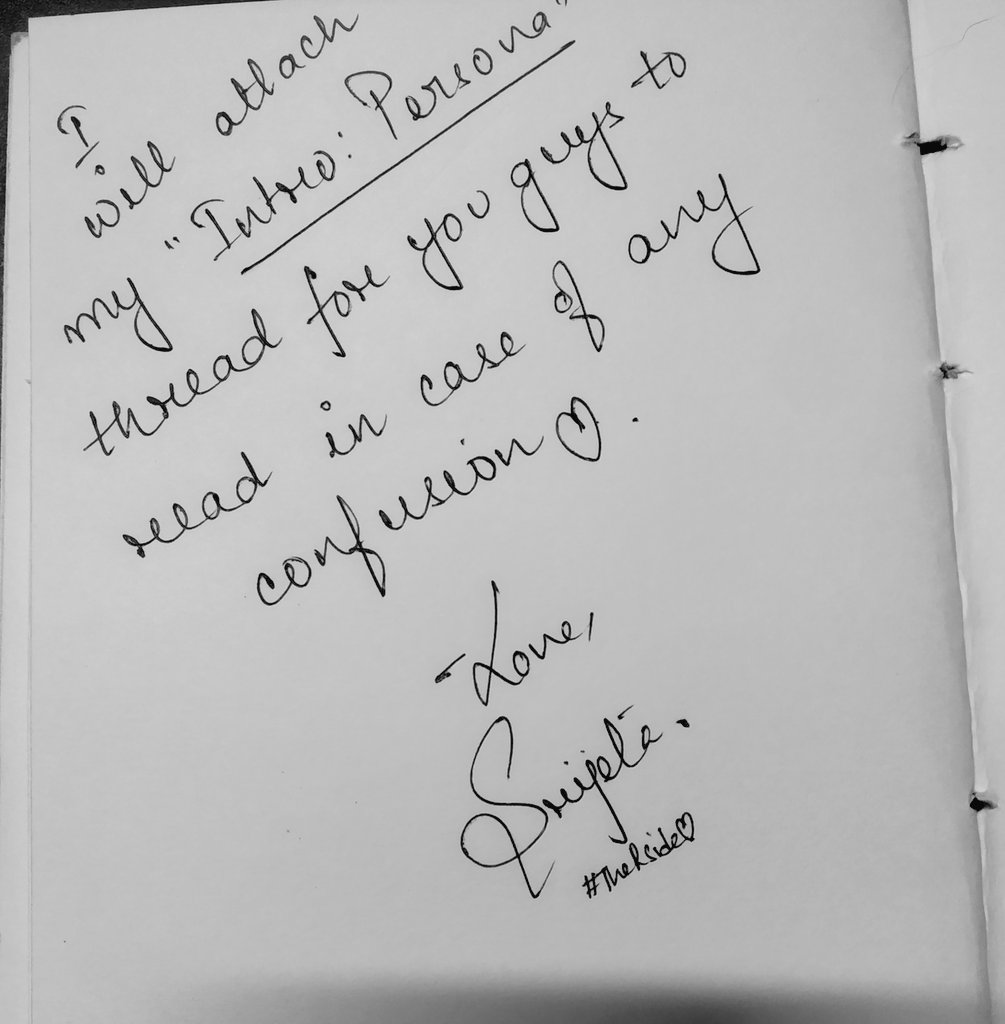 I
will attach
my "Intro: Persona"
thread for you guys to
read in case of any
confusion ♡.
- Love,
Srijeta.
#TheRside♡